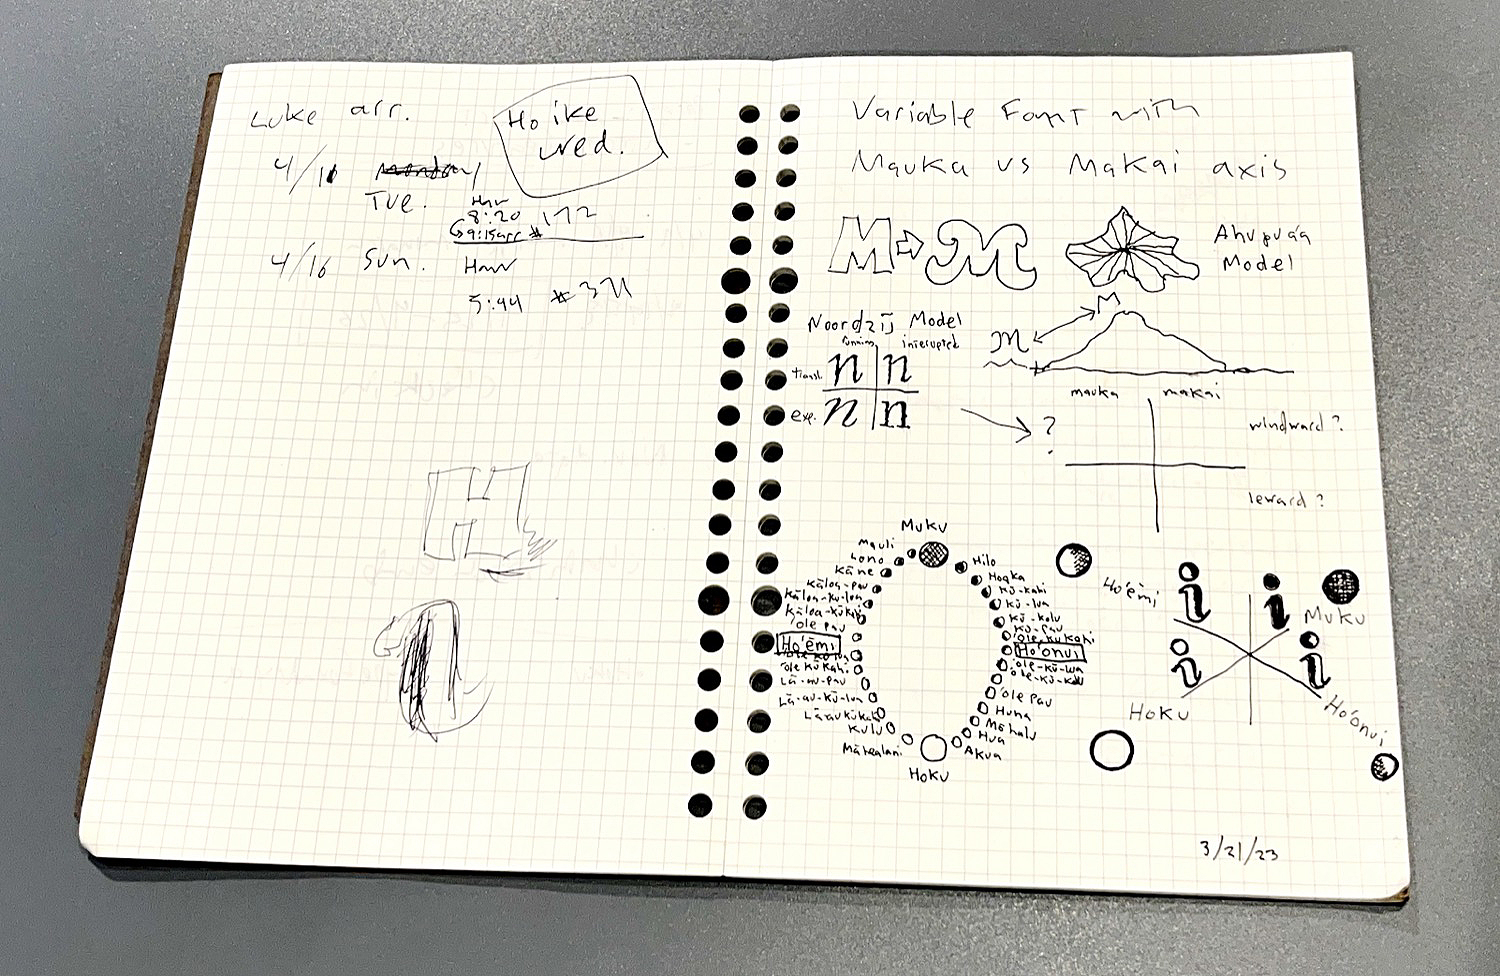 Luke arr.
Ho ike
wed.
4/10
Tue.
8:20
9:15arr #172
4/16 Sun.
5:44
H
Variable Font with
Mauka vs Makai axis
M M
Ahupua'a
Model
Noordzij Model
running interupted
transl. n n
exp. n n
M M
?
mauka makai
windward ?
leward ?
Muku
Mauli
Lono
Kāne
Kāloa-pau
Kāloa-kū-lua
Kāloa-kūkahi
'ole pau
Ho'ēmi
'ole kūlua
'ole kūkahi
Lā-au-pau
Lā-au-kū-lua
Lā-au kūkahi
Kulu
Māhealani
Hoku
Hilo
Hoaka
Kū-kahi
Kū-lua
Kū-kolu
Kū-pau
'ole kukahi
Ho'onui
'ole-kū-lua
'ole-kū-kolu
'ole pau
Huna
Mōhalu
Hua
Akua
Ho'ēmi
i i
Muku
i i
Hoku
Ho'onui
3/21/23